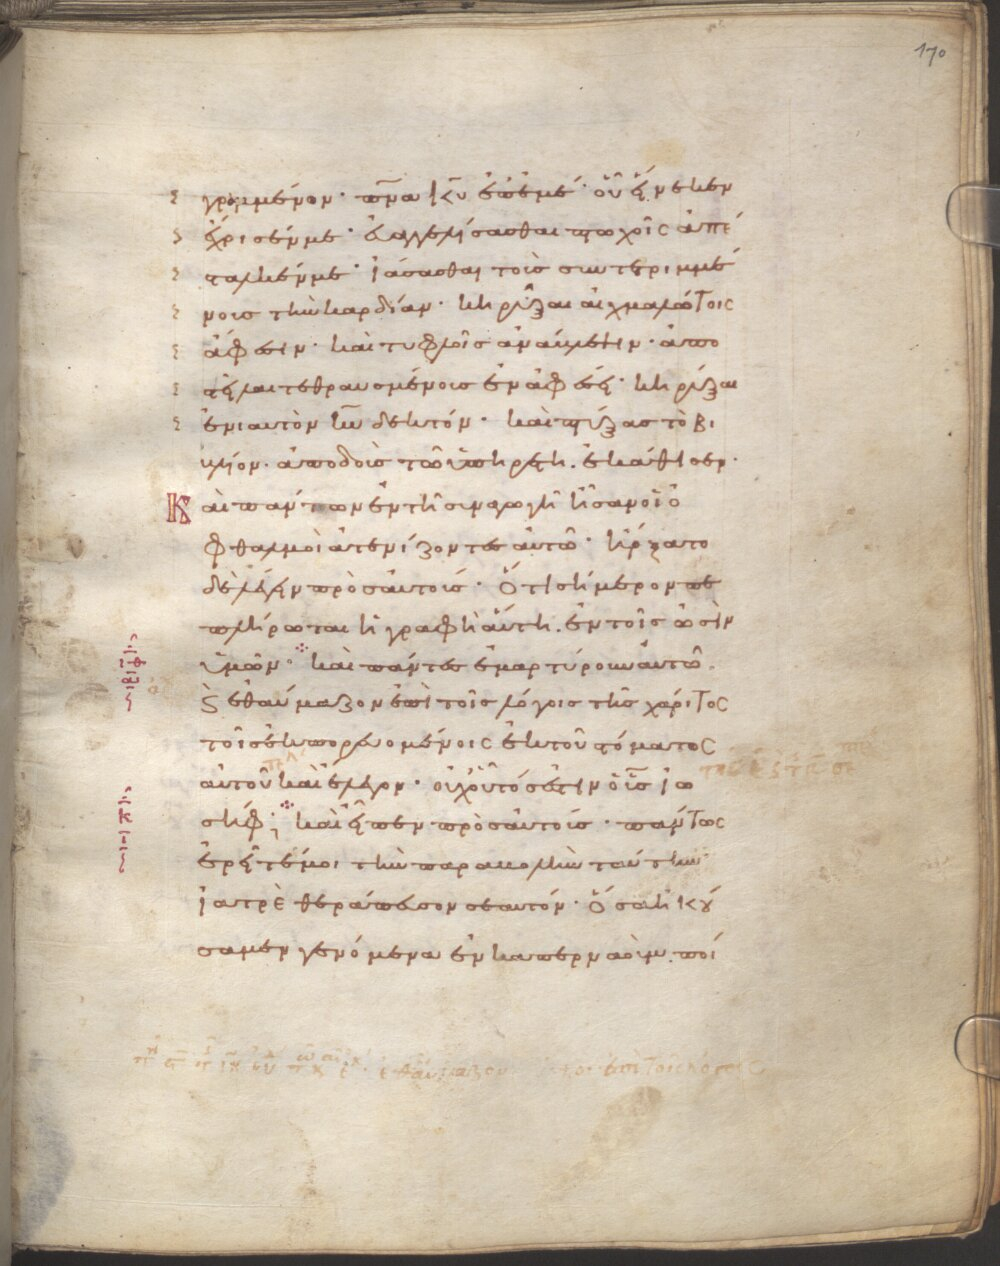 170
γραμμένον· πνα κυ ἐπ ἐμέ· οὗ εἵνεκεν
ἔχρισέν με· εὐαγγελίσασθαι πτωχοῖς ἀπέ
σταλκέν με· ἰάσασθαι τοὺς συντετριμμέ
νους τὴν καρδίαν· κηρύξαι αἰχμαλώτοις
ἄφεσιν· καὶ τυφλοῖς ἀνάβλεψιν· ἀπο
στεῖλαι τεθραυσμένους ἐν ἀφέσει· κηρύξαι
ἐνιαυτὸν κυ δεκτόν· καὶ πτύξας τὸ βι
βλίον· ἀποδοὺς τῶ ὑπηρέτη. ἐκάθισεν·
Καὶ πάντων ἐν τῆ συναγωγῆ ἦσαν οἱ ὀ
φθαλμοὶ ἀτενίζοντες αὐτῶ· ἤρξατο
δὲ λέγειν πρὸς αὐτούς· Ὅτι σήμερον πε
πλήρωται ἡ γραφὴ αὕτη. ἐν τοῖς ὠσὶν
ὑμῶν· καὶ πάντες ἐμαρτύρουν αὐτῶ.
Ϛ ἐθαύμαζον ἐπὶ τοῖς λόγοις τῆς χάριτος
τοῖς ἐκπορευομένοις ἐκ τοῦ στόματος
αὐτοῦ καὶ ἔλεγον· οὐχ οὗτός ἐστιν ὁ υἱς ἰω
σήφ; καὶ εἶπεν πρὸς αὐτούς· πάντως
ἐρεῖτέ μοι τὴν παραβολὴν ταύτην
ἰατρὲ θεράπευσον σεαυτόν· Ὅσα ἠκού
σαμεν γενόμενα ἐν καπερναοὺμ. ποί
ἐθαύμαζον ἐπὶ τοῖς λόγοις